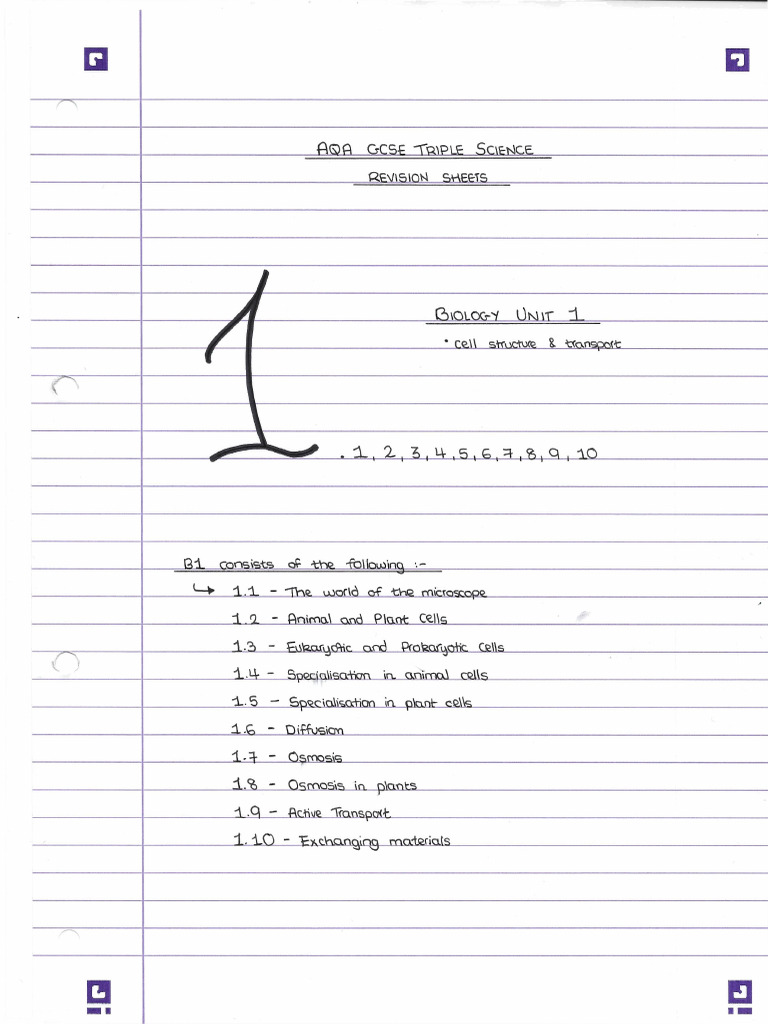 AQA GCSE TRIPLE SCIENCE
REVISION SHEETS
1
BIOLOGY UNIT 1
• cell structure & transport
. 1, 2, 3, 4, 5, 6, 7, 8, 9, 10
B1 consists of the following :-
↳ 1.1 - The world of the microscope
1.2 - Animal and Plant Cells
1.3 - Eukaryotic and Prokaryotic Cells
1.4 - Specialisation in animal cells
1.5 - Specialisation in plant cells
1.6 - Diffusion
1.7 - Osmosis
1.8 - Osmosis in plants
1.9 - Active Transport
1.10 - Exchanging materials